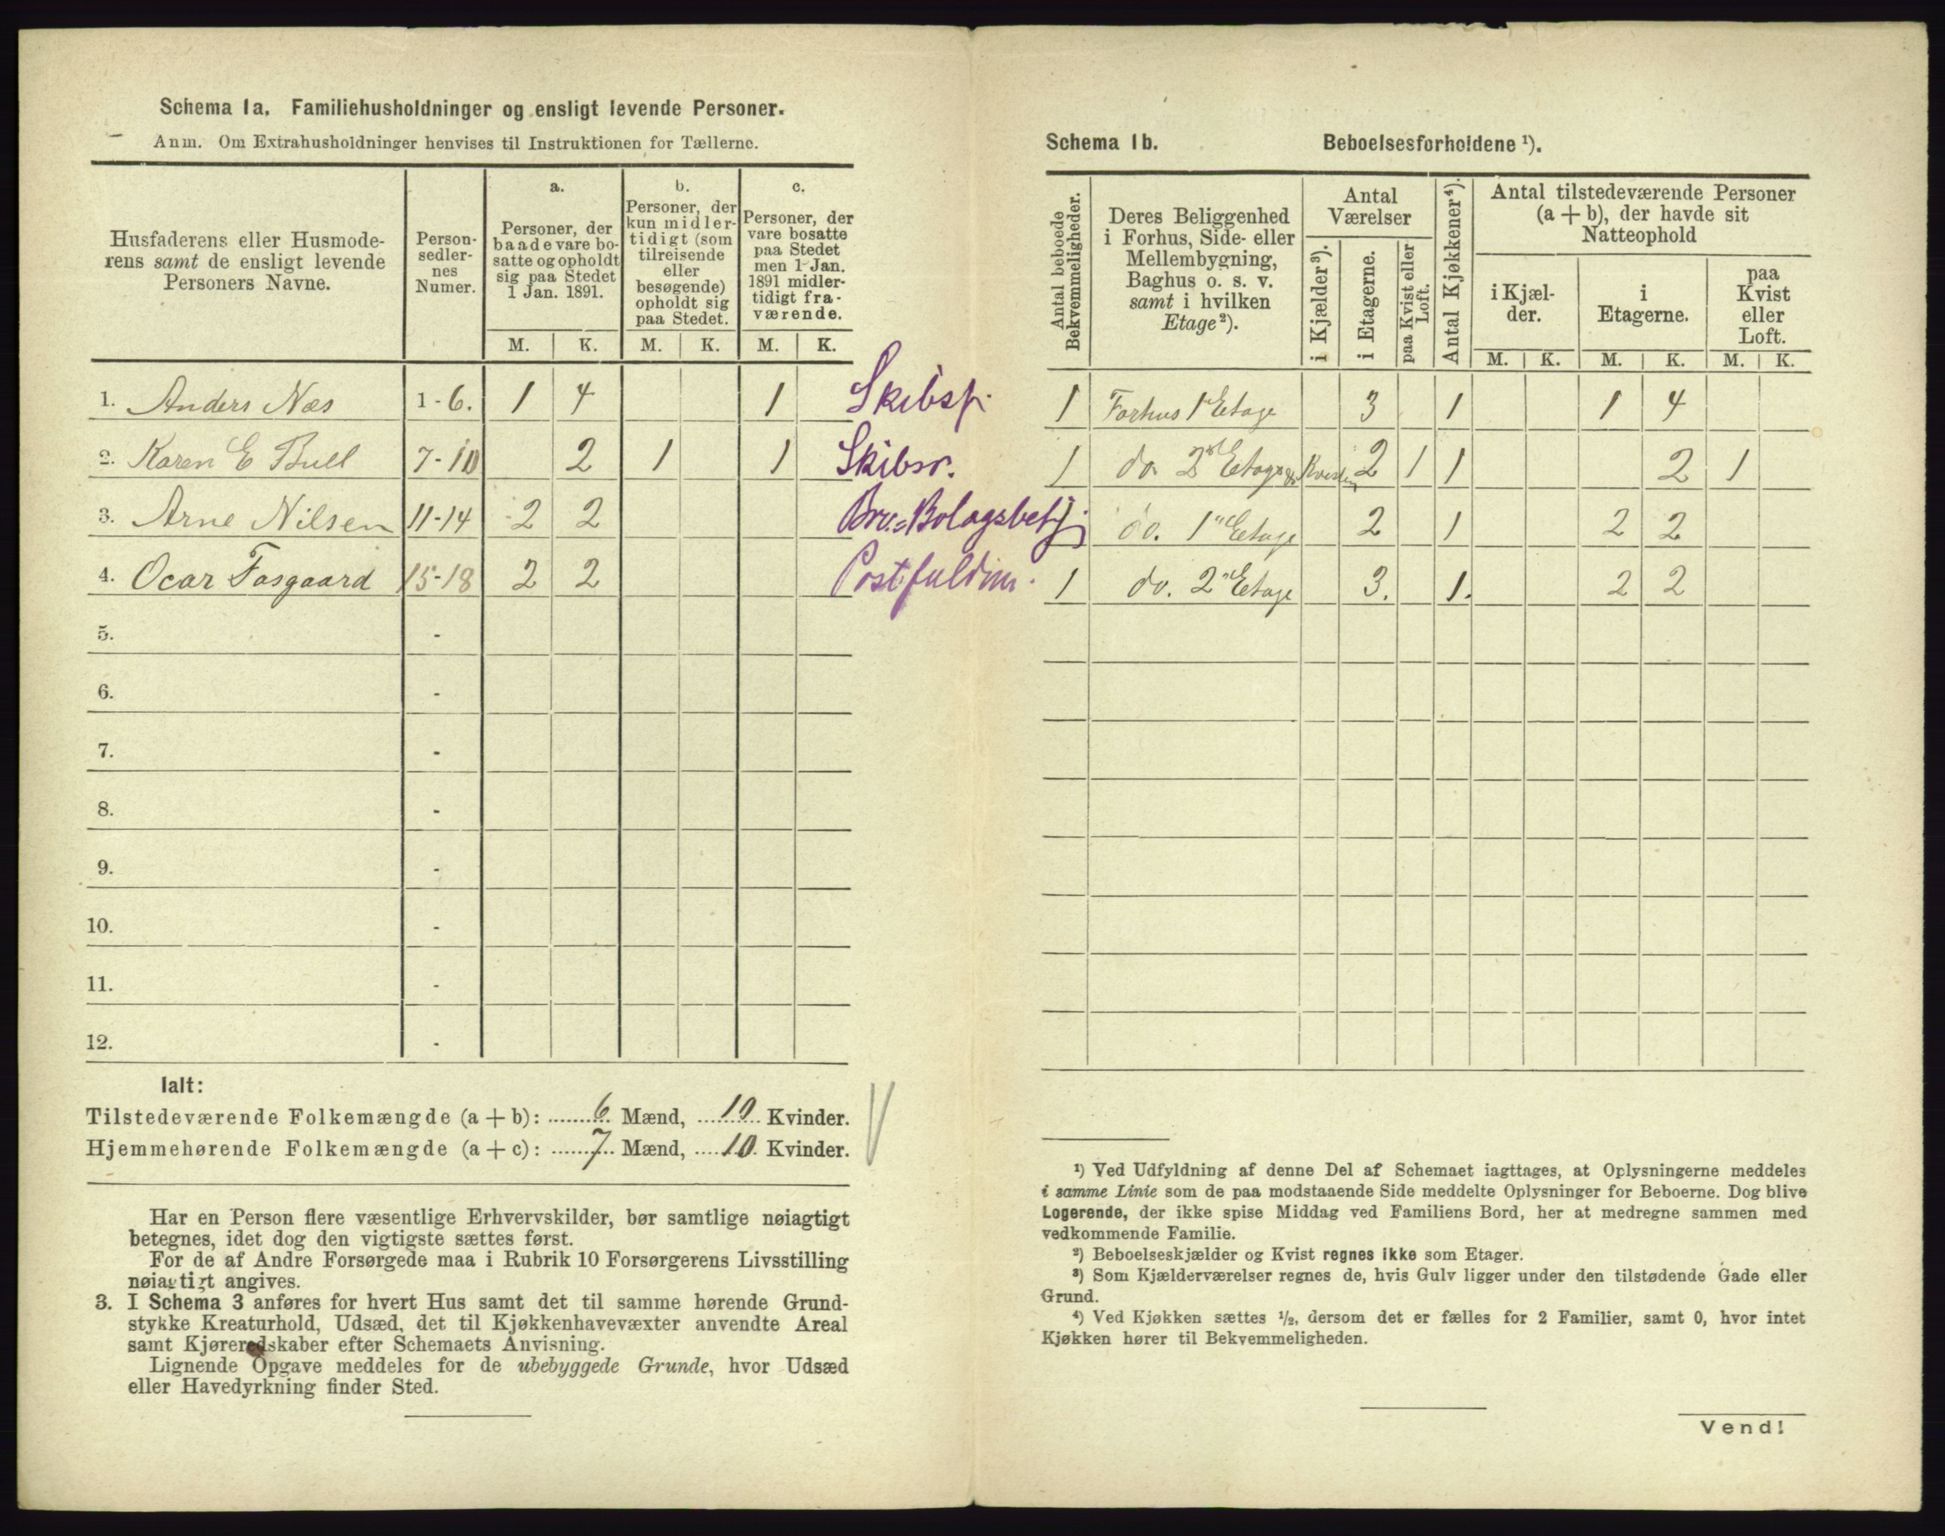 Schema 1a. Familiehusholdninger og ensligt levende Personer.
Anm. Om Extrahusholdninger henvises til Instruktionen for Tællerne.
Husfaderens eller Husmode-
rens samt de ensligt levende
Personers Navne.
Person-
sedler-
nes
Numer.
a.
Personer, der
baade vare bo-
satte og opholdt
sig paa Stedet
1 Jan. 1891.
b.
Personer, der
kun midler-
tidigt (som
tilreisende
eller
besøgende)
opholdt sig
paa Stedet.
c.
Personer, der
vare bosatte
paa Stedet
men 1 Jan.
1891 midler-
tidigt fra-
værende.
M. K. M. K. M. K.
1. Anders Næs 1-6. 1 4 1 Skibsf.
2. Karen E Bull 7-10 2 1 1 Skibsr.
3. Arne Nilsen 11-14 2 2
4. Ocar Fosgaard 15-18 2 2
5. -
6. -
7. -
8. -
9. -
10. -
11. -
12. -
Ialt:
Tilstedeværende Folkemængde (a + b): 6 Mænd, 10 Kvinder.
Hjemmehørende Folkemængde (a + c): 7 Mænd, 10 Kvinder.
Har en Person flere væsentlige Erhvervskilder, bør samtlige nøiagtigt
betegnes, idet dog den vigtigste sættes først.
For de af Andre Forsørgede maa i Rubrik 10 Forsørgerens Livsstilling
nøiagtigt angives.
3. I Schema 3 anføres for hvert Hus samt det til samme hørende Grund-
stykke Kreaturhold, Udsæd, det til Kjøkkenhavevæxter anvendte Areal
samt Kjøreredskaber efter Schemaets Anvisning.
Lignende Opgave meddeles for de ubebyggede Grunde, hvor Udsæd
eller Havedyrkning finder Sted.
Schema 1b. Beboelsesforholdene ¹).
Antal beboede
Bekvemmeligheder.
Deres Beliggenhed
i Forhus, Side- eller
Mellembygning,
Baghus o. s. v.
samt i hvilken
Etage²).
Antal
Værelser
i Kjælder³).
i Etagerne.
paa Kvist eller
Loft.
Antal Kjøkkener⁴).
Antal tilstedeværende Personer
(a + b), der havde sit
Natteophold
i Kjæl-
der.
i
Etagerne.
paa
Kvist
eller
Loft.
M. K. M. K. M. K.
1 Forhus 1 Etage 3 1 1 4
1 do. 2 Etage 2 1 1 2 1
do. 1 Etage 2 1 2 2
1 do. 2 Etage 3. 1. 2 2
¹) Ved Udfyldning af denne Del af Schemaet iagttages, at Oplysningerne meddeles
i samme Linie som de paa modstaaende Side meddelte Oplysninger for Beboerne. Dog blive
Logerende, der ikke spise Middag ved Familiens Bord, her at medregne sammen med
vedkommende Familie.
²) Beboelseskjælder og Kvist regnes ikke som Etager.
³) Som Kjælderværelser regnes de, hvis Gulv ligger under den tilstødende Gade eller
Grund.
⁴) Ved Kjøkken sættes ½, dersom det er fælles for 2 Familier, samt 0, hvor intet
Kjøkken hører til Bekvemmeligheden.
Vend!